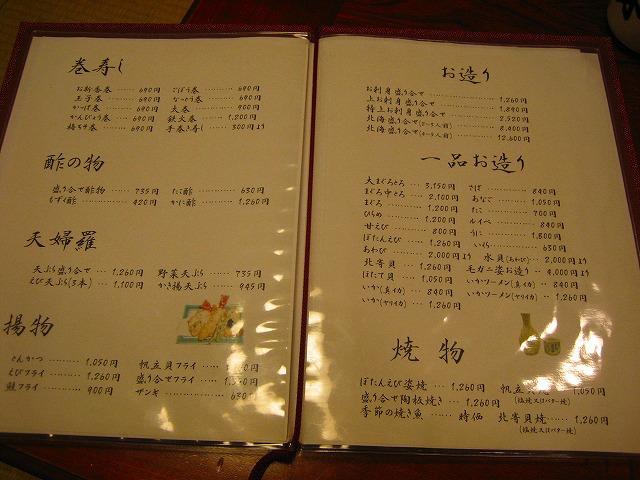 巻寿し
お新香巻 ‥‥‥ 690円 ごぼう巻 ‥‥‥ 690円
玉子巻 ‥‥‥ 690円 なっとう巻 ‥‥ 690円
かっぱ巻 ‥‥‥ 690円 太巻 ‥‥‥ 900円
かんぴょう巻 ‥‥ 690円 鉄火巻 ‥‥‥ 1,200円
梅しそ巻 ‥‥‥ 690円 手巻き寿し ‥‥ 300円より
酢の物
盛り合せ酢物 ‥‥‥ 735円 たこ酢 ‥‥‥ 630円
もずく酢 ‥‥‥ 420円 かに酢 ‥‥‥ 1,260円
天婦羅
天ぷら盛り合せ ‥‥ 1,260円 野菜天ぷら ‥‥‥ 735円
えび天ぷら(3本) ‥‥ 1,100円 かき揚天ぷら ‥‥ 945円
揚物
とんかつ ‥‥‥ 1,050円 帆立貝フライ ‥‥
えびフライ ‥‥‥ 1,260円 盛り合せフライ ‥‥
鮭フライ ‥‥‥ 900円 ザンギ ‥‥‥ 630円
お造り
お刺身盛り合せ ‥‥‥ 1,260円
上お刺身盛り合せ ‥‥‥ 1,890円
特上お刺身盛り合せ ‥‥‥ 2,520円
北海盛り合せ(2〜3人前) ‥‥‥ 8,400円
北海盛り合せ(4〜5人前) ‥‥‥ 12,600円
一品お造り
大まぐろとろ ‥‥ 3,150円 さば ‥‥‥ 840円
まぐろ中とろ ‥‥ 2,100円 あなご ‥‥‥ 1,050円
まぐろ ‥‥‥ 1,200円 たこ ‥‥‥ 700円
ひらめ ‥‥‥ 1,200円 ルイベ ‥‥‥ 840円
甘えび ‥‥‥ 800円 うに ‥‥‥ 1,800円
ぼたんえび ‥‥‥ 1,260円 いくら ‥‥‥ 630円
あわび ‥‥‥ 2,000円より 水貝(あわび) ‥‥ 2,000円より
北寄貝 ‥‥‥ 1,260円 毛ガニ姿お造り ‥‥ 4,000円より
ほたて貝 ‥‥‥ 1,050円 いかソーメン(真イカ) ‥‥ 840円
いか(真イカ) ‥‥‥ 840円 いかソーメン(ヤリイカ) ‥‥ 1,260円
いか(ヤリイカ) ‥‥‥ 1,260円
焼物
ぼたんえび姿焼 ‥‥ 1,260円 帆立貝焼 ‥‥‥ 1,050円
(塩焼又はバター焼)
盛り合せ陶板焼き ‥‥ 1,260円
季節の焼き魚 ‥‥‥ 時価 北寄貝焼 ‥‥‥ 1,260円
(塩焼又はバター焼)